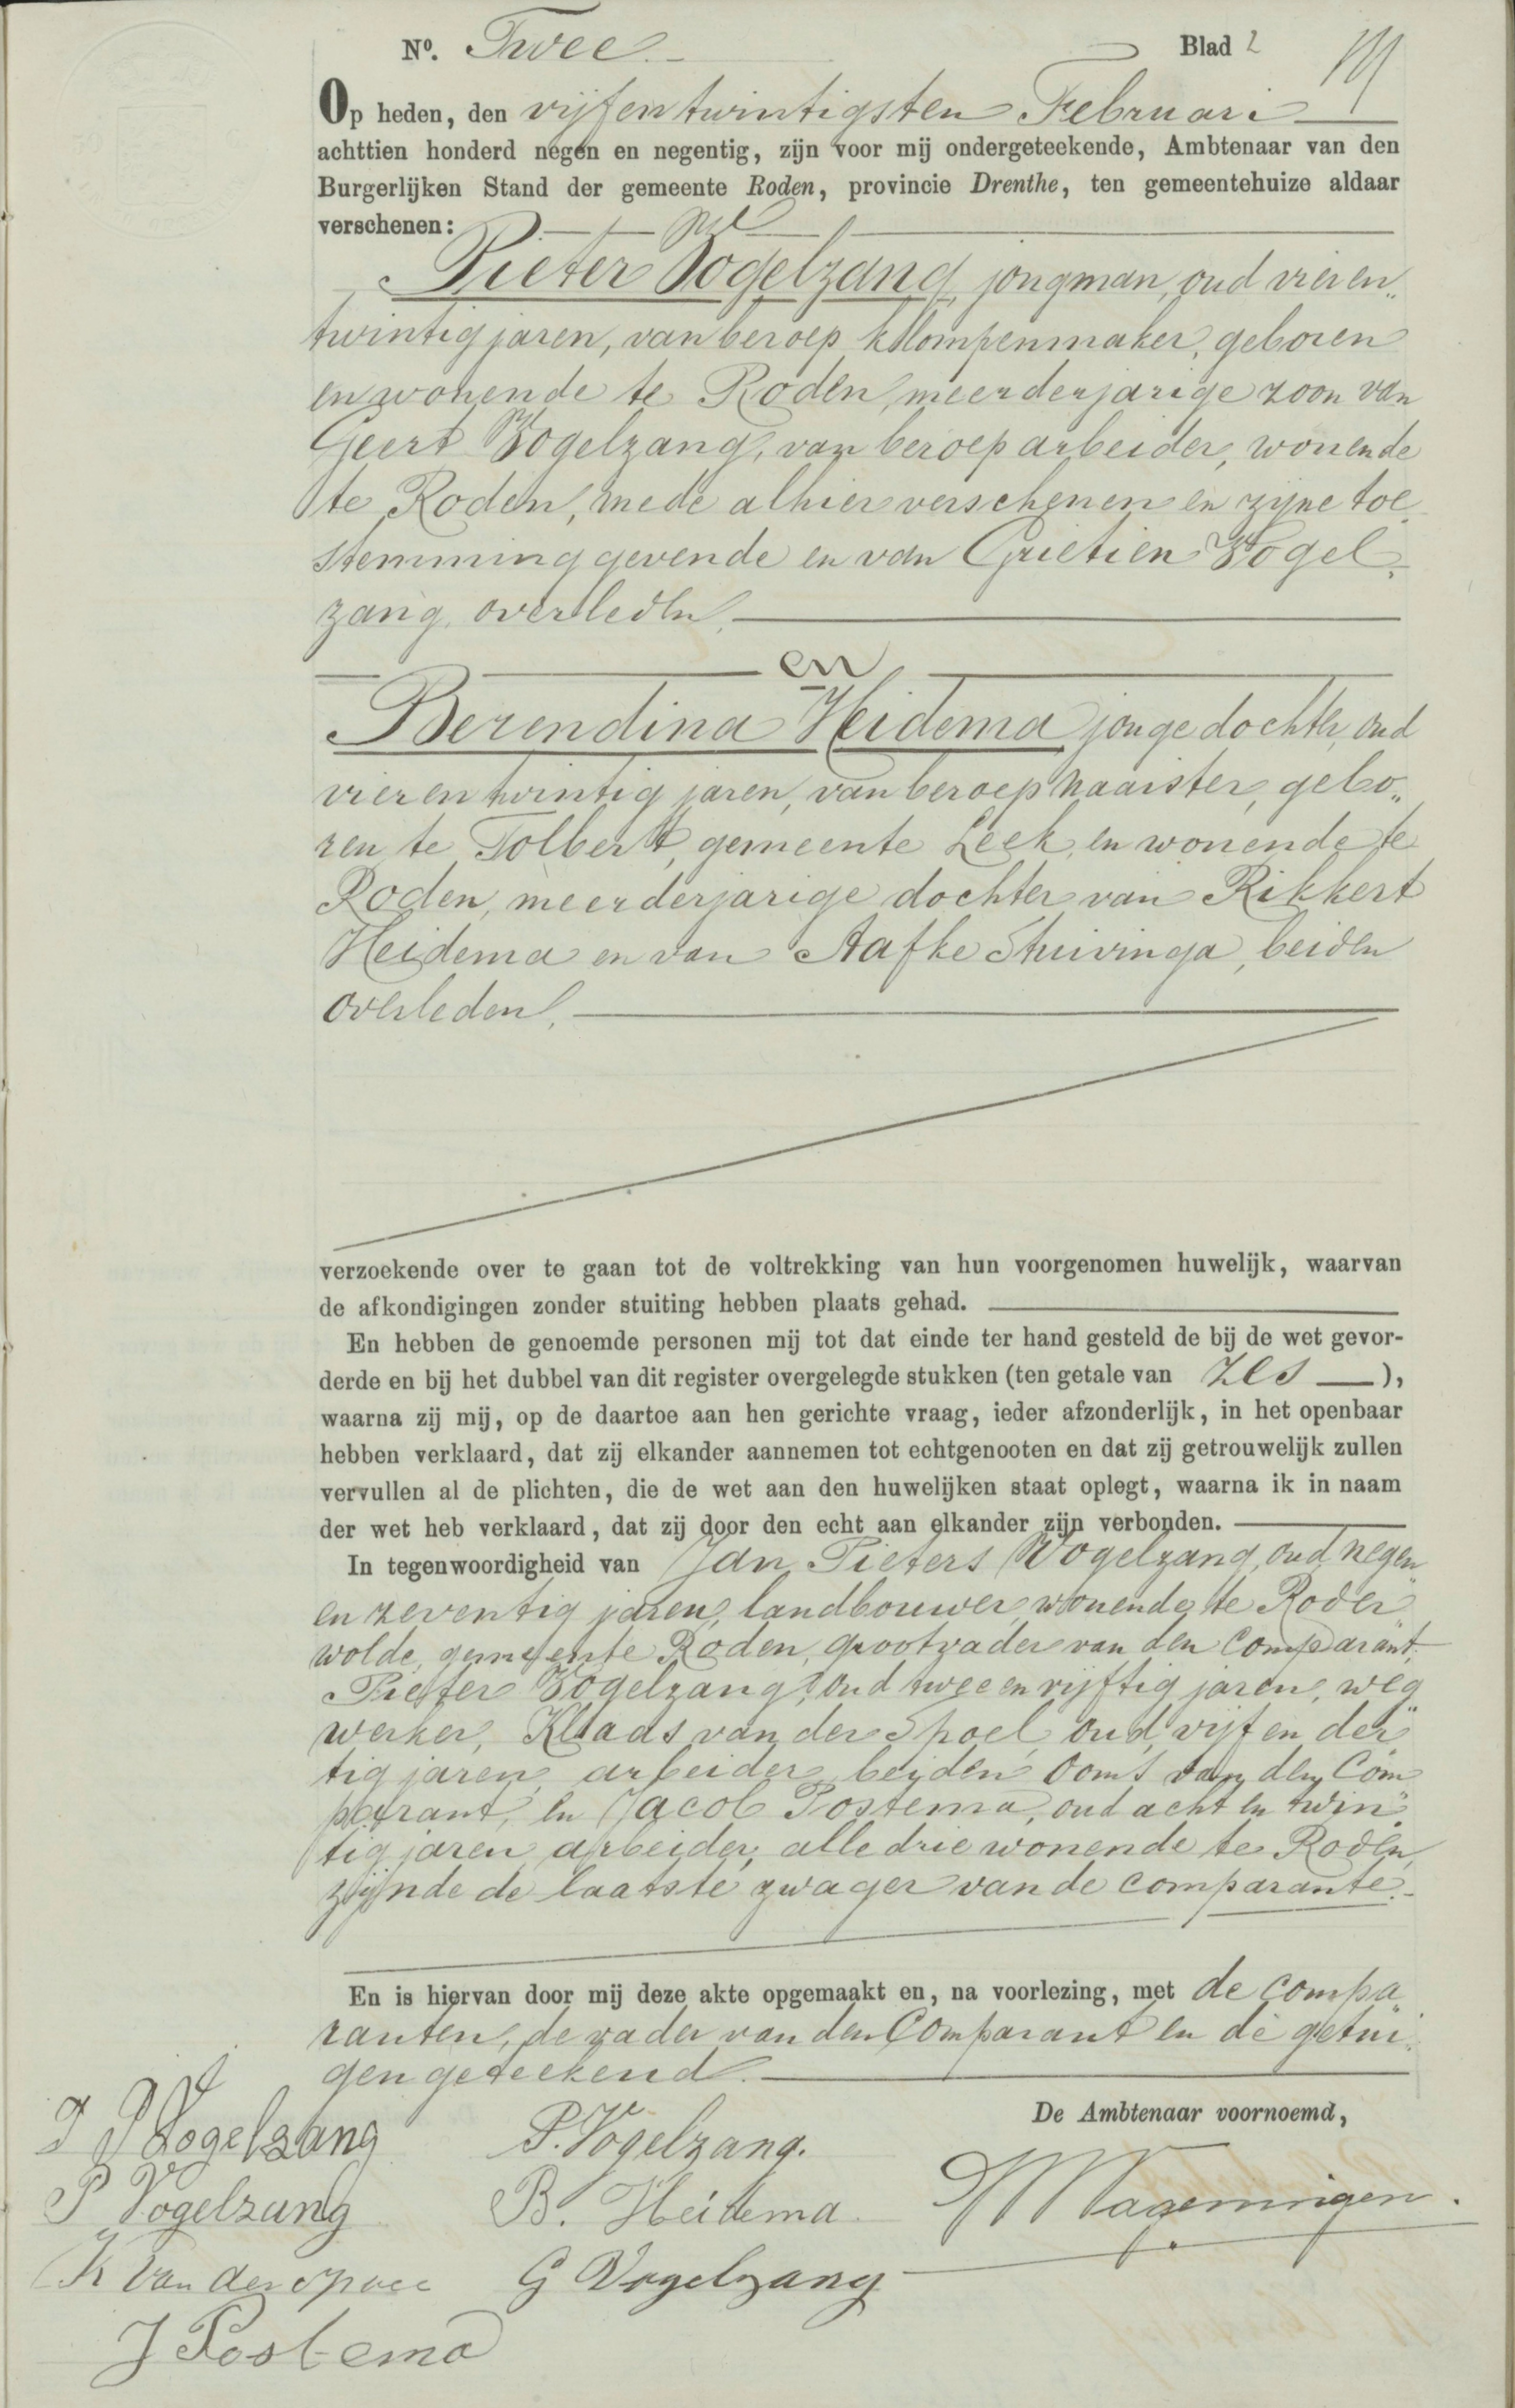 No. Twee.
Blad 2
Op heden, den vijfentwintigsten Februari
achttien honderd negen en negentig, zijn voor mij ondergeteekende, Ambtenaar van den
Burgerlijken Stand der gemeente Roden, provincie Drenthe, ten gemeentehuize aldaar
verschenen:
Pieter Vogelzang, jongman, oud vieren„
twintig jaren, van beroep klompenmaker, geboren
en wonende te Roden, meerderjarige zoon van
Geert Vogelzang, van beroep arbeider, wonende
te Roden, mede alhier verschenen en zijne toe
stemming gevende en van Grietien Vogel„
zang, overleden.
en
Berendina Heidema jongedochter, oud
vierentwintig jaren, van beroep naaister, gebo„
ren te Tolbert, gemeente Leek, en wonende te
Roden, meerderjarige dochter van Rikkert
Heidema en van Aafke Stuivinga, beiden
overleden.
verzoekende over te gaan tot de voltrekking van hun voorgenomen huwelijk, waarvan
de afkondigingen zonder stuiting hebben plaats gehad.
En hebben de genoemde personen mij tot dat einde ter hand gesteld de bij de wet gevor-
derde en bij het dubbel van dit register overgelegde stukken (ten getale van zes),
waarna zij mij, op de daartoe aan hen gerichte vraag, ieder afzonderlijk, in het openbaar
hebben verklaard, dat zij elkander aannemen tot echtgenooten en dat zij getrouwelijk zullen
vervullen al de plichten, die de wet aan den huwelijken staat oplegt, waarna ik in naam
der wet heb verklaard, dat zij door den echt aan elkander zijn verbonden.
In tegenwoordigheid van Jan Pieters Vogelzang, oud negen
en zeventig jaren, landbouwer, wonende te Roder„
wolde, gemeente Roden, grootvader van den comparant,
Pieter Vogelzang, oud twee en vijftig jaren, weg
werker, Klaas van der Spoel, oud vijf en der„
tig jaren, arbeider, beiden ooms van den Com
parant, en Jacob Postema, oud acht en twin„
tig jaren, arbeider, alle drie wonende te Roden,
zijnde de laatste zwager van de comparante.
En is hiervan door mij deze akte opgemaakt en, na voorlezing, met de compa„
ranten, de vader van den Comparant en de getui„
gen geteekend.
De Ambtenaar voornoemd,
J P Vogelzang
P. Vogelzang.
P Vogelzang
B. Heidema
Wageningen.
K van der Spoel
G Vogelzang
J Postema